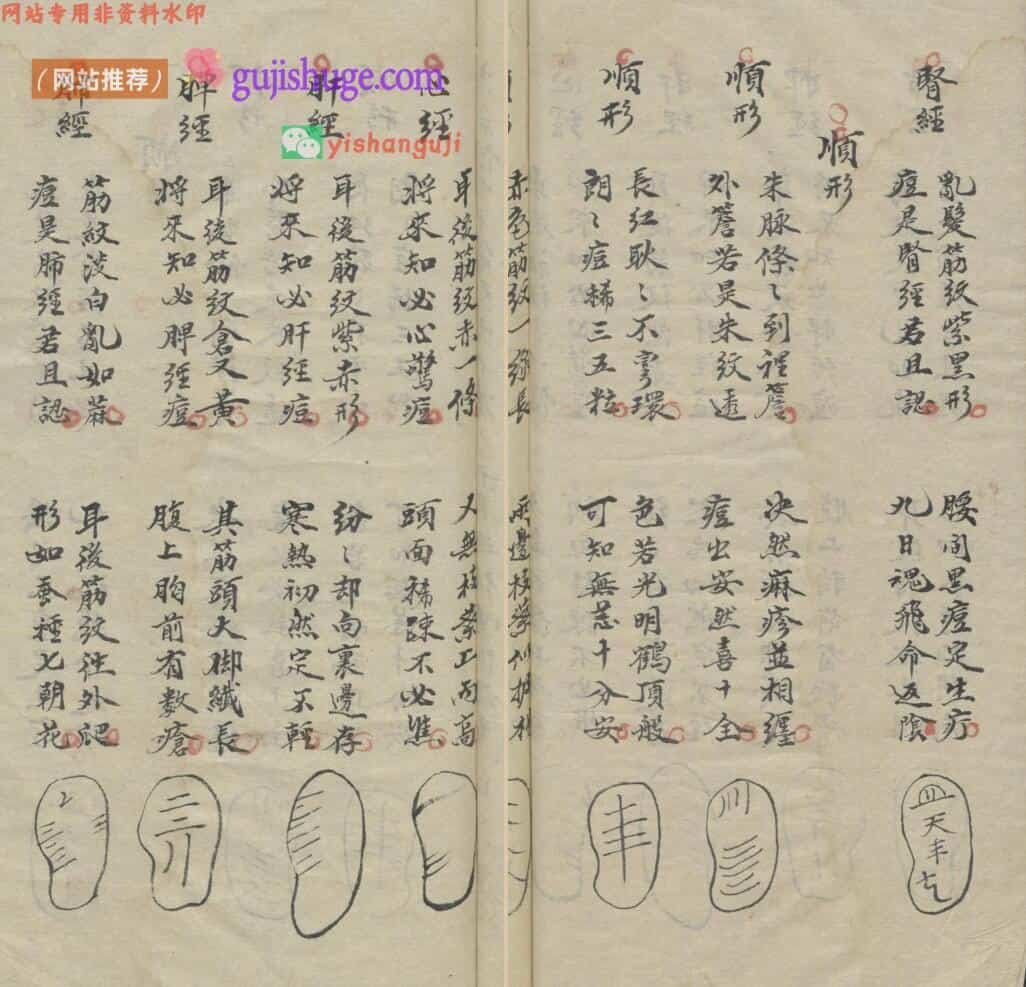 网站专用非资料水印
（网站推荐）
gujishuge.com
yishanguji
腎經
亂髮筋紋紫黑形
痘是腎經君且認
腰間黑痘定生疔
九日魂飛命返陰
順形
順形
朱脉條〻到裡簷
外簷若是朱紋透
决然痳疹並相纏
痘出安然喜十全
順形
長紅耿〻不穿環
朗〻痘稀三五粒
色若光明鶴頂般
可知無恙十分安
赤色筋紋一條長
兩邊枝葉似
心經
耳後筋紋赤一條
將來知必心驚痘
頭面稀踈不必焦
肝經
耳後筋紋紫赤形
將來知必肝經痘
紛〻却向裏邊存
寒熱初然定不輕
脾經
耳後筋紋倉又黃
將來知必脾經痘
其筋頭大脚纖長
腹上胸前有數瘡
肺經
筋紋淡白亂如蔴
痘是肺經君且認
耳後筋紋往外爬
形如蚕種七朝花